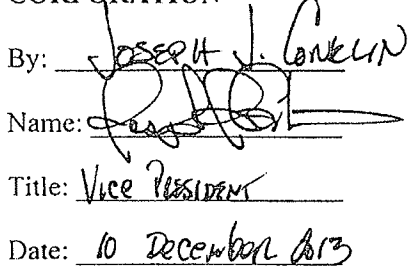 CORPORATION
By: JOSEPH J. CONKLIN
Name:
Title: VICE PRESIDENT
Date: 10 December 2013